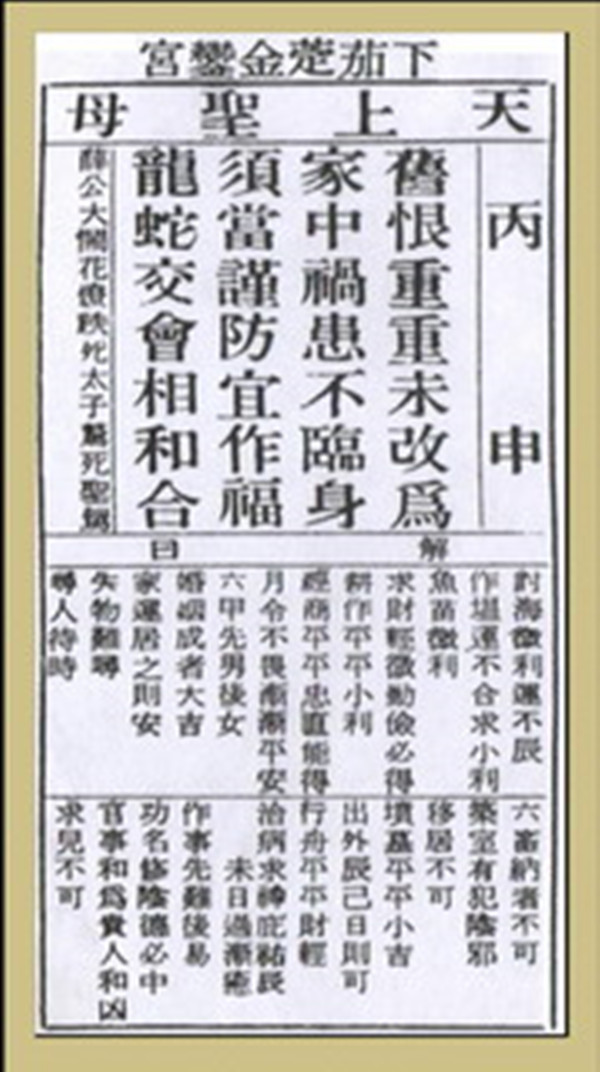 宮鑾金萣茄下
母聖上天
丙申
舊恨重重未改為
家中禍患不臨身
須當謹防宜作福
龍蛇交會相和合
薛公大鬧花燈跌死太子驚死聖駕
曰解
討海微利運不辰
作塭運不合求小利
魚苗微利
求財輕微勤儉必得
耕作平平小利
經商平平忠直能得
月令不畏漸漸平安
六甲先男後女
婚姻成者大吉
家運居之則安
失物難尋
尋人待時
六畜納者不可
築室有犯陰邪
移居不可
墳墓平平小吉
出外辰己日則可
行舟平平財輕
治病求神庇祐辰
未日過漸癒
作事先難後易
功名修陰德必中
官事和為貴人和凶
求兒不可